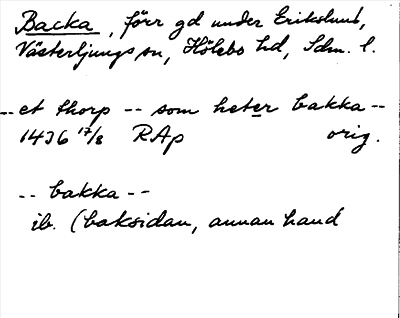 Backa, förr gd under Erikslund,
Västerljungs sn, Hölebo hd, Sdm. l.
-- et thorp -- som heter bakka --
1436 17/8 RAp orig.
-- bakka --
ib. (baksidan, annan hand